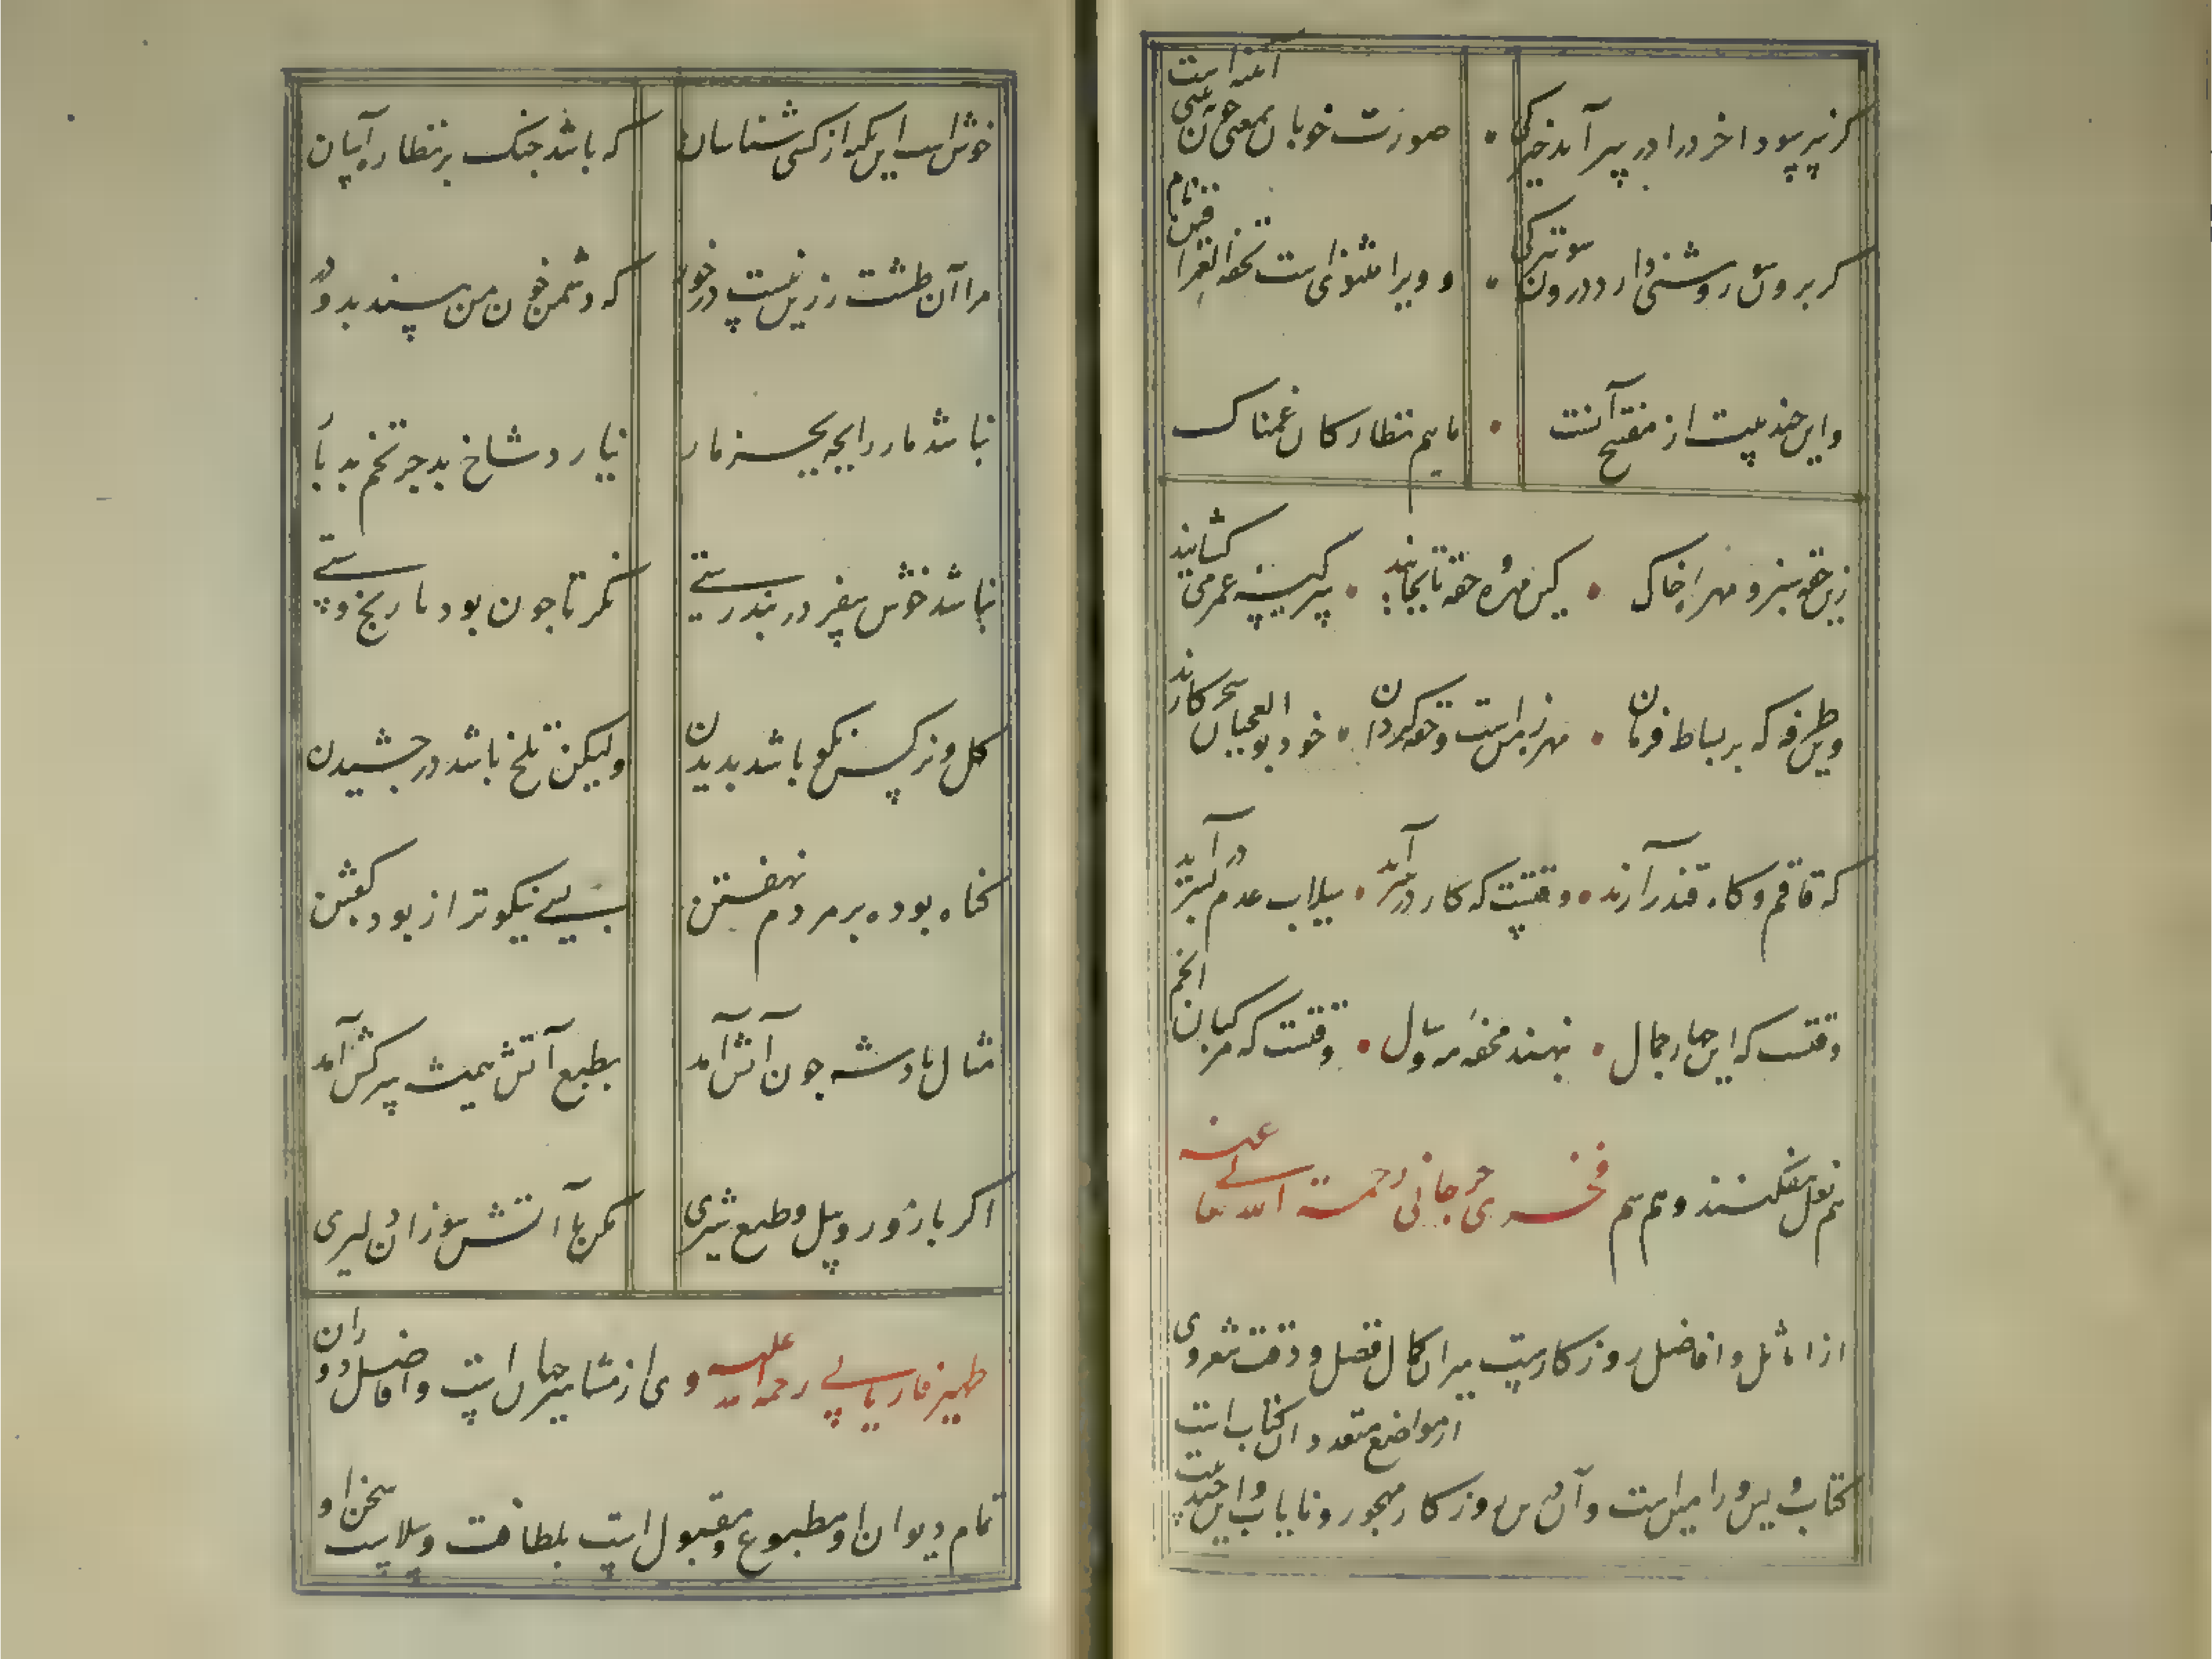 کر نپرپود اخر در ادر پیر آمد خیرکی • صورت خوبان بمعنی چون همی
اغذاست
کر برون روشنی دارد درون سوتیرکی • و ویرا مثنوی است تحفة العراقین نام
واین چند بیت از مفتتح آنست • ماییم نظارکان غمناک
زین حقه سبز و مهره خاک • کین مهره و حقه تا بجایند • پیر کیسه عمر می کشایند
وین طرفه که بر بساط فرمان • مهره زبس است و حقه کردان • خود بوالعجبان سحرکارند
که قاقم و کاه قندز آرند • وقتیست که کار در سر آمد • سیلاب عدم در آید
وقتست که این چهار حمال • بنهند محفه مه و سال • وقتست که مرکبان انجم
هم نعل بیفکنند و هم سم فخری جرجانی رحمة الله تعالی عنه
از اماثل و افاضل روزکارست میزان کمال فضل و دقت شعر وی
از مواضع متعدد ان کتاب است
کتاب ویس و رامین است و آن درین روزکار مهجور و نایاب و این چند بیت
خوش است این نکته از کیتی شناسان
که باشد جنک بر نظاره آسان
مرا آن طشت زرین نیست در خور
که دشمن خون من بیند بدو در
نباشد مار را بچه بجز مار
نیارد شاخ بد جز تخم بد بار
نباشد خوش سفر در تندرستی
نکر تا چون بود با رنج و سستی
کل و نرکس نکو باشد بدیدن
ولیکن تلخ باشد در چشیدن
کناه بوده بر مردم نهفتن
بسی نیکوتر از نبود کفتن
مثال پادشه چون آتش آمد
بطبع آتش همیشه سرکش آمد
اکر با زور پیل و طبع شیری
مکن با آتش سوزان دلیری
ظهیر فاریابی رحمة الله علیه وی از مشاهیر جهان است و افاضل دوران
تمام دیوان او مطبوع و مقبول است بلطافت و سلاست سخن او